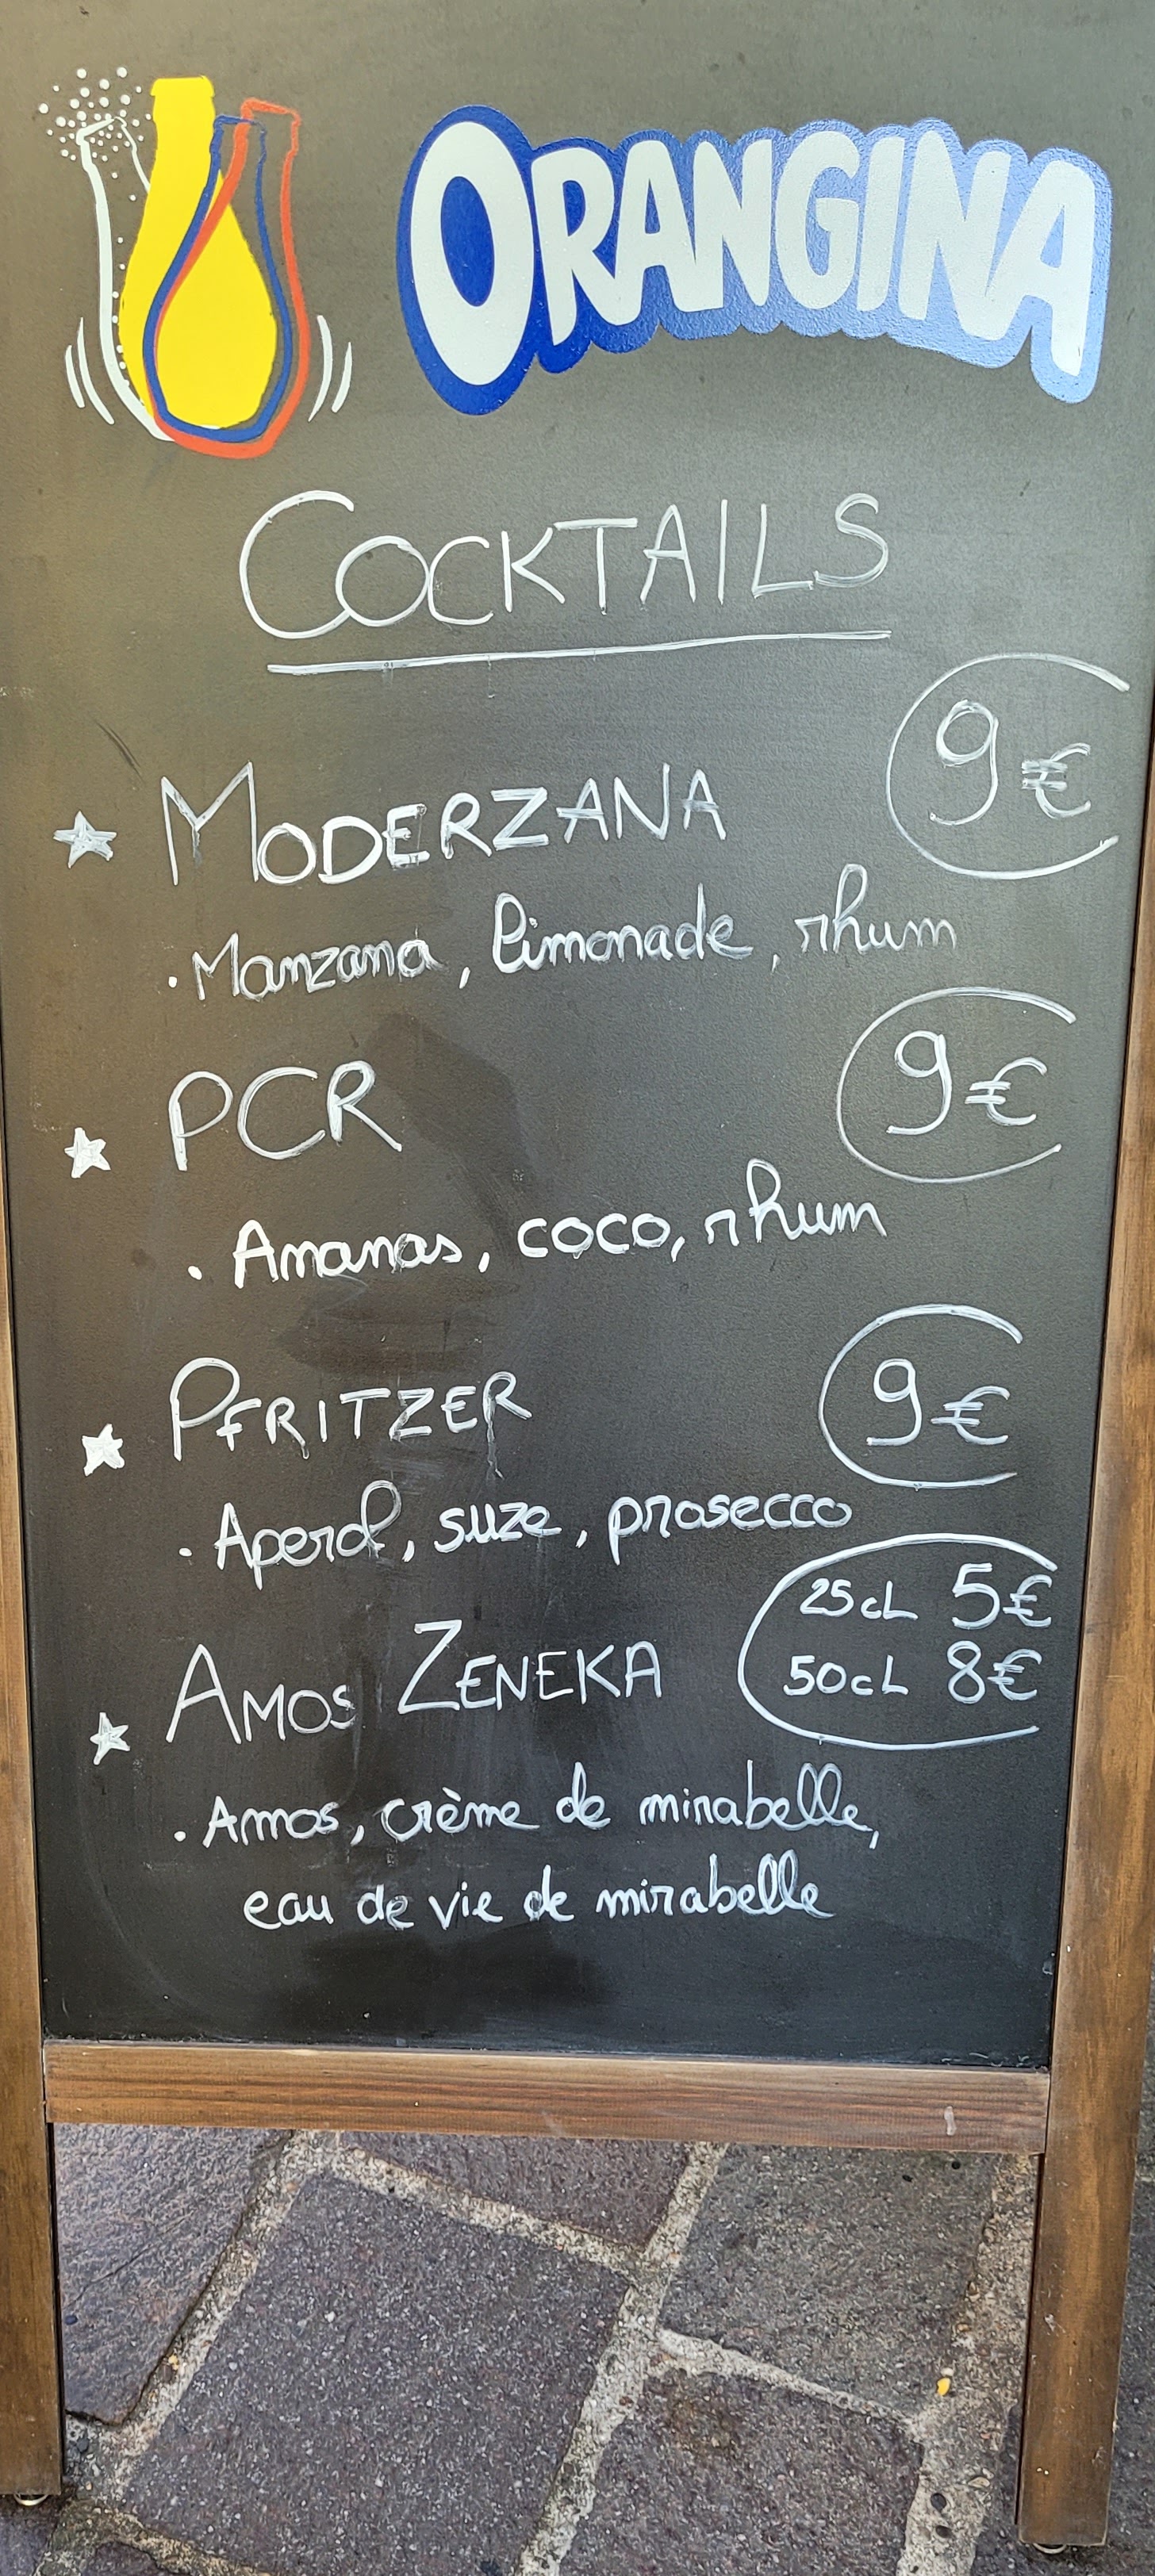 ORANGINA
COCKTAILS
MODERZANA 9€
• Manzana, limonade, rhum
PCR 9€
• Ananas, coco, rhum
PFRITZER 9€
• Aperol, suze, prosecco
25cL 5€
AMOS ZENEKA 50cL 8€
• Amos, crème de mirabelle,
eau de vie de mirabelle